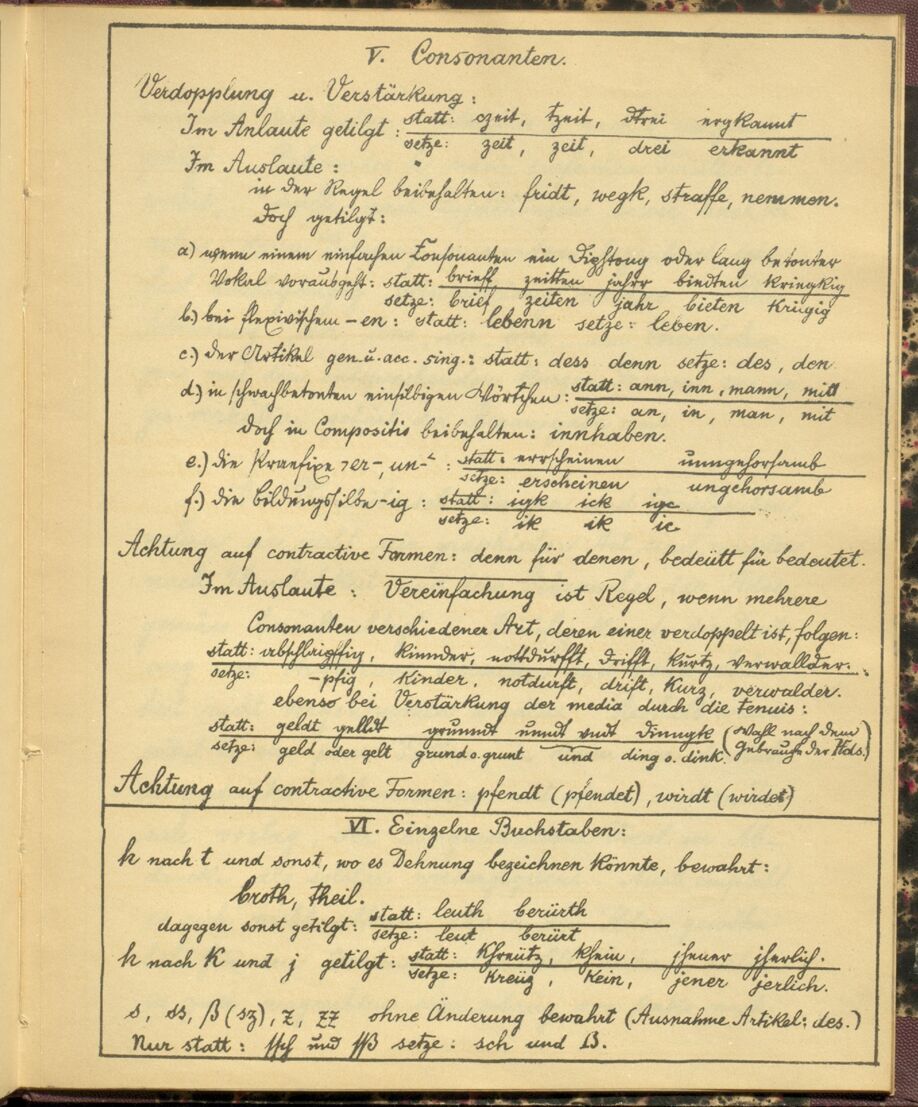 V. Consonanten.
Verdopplung u. Verstärkung:
Im Anlaute getilgt: statt: czeit, tzeit, dtrei ergkannt
setze: zeit, zeit, drei erkannt
Im Auslaute:
in der Regel beibehalten: fridt, wegk, straffe, nemmen.
doch getilgt:
a) wenn einem einfachen Consonanten ein Diphtong oder lang betonter
Vokal vorausgeht: statt: brieff zeitten jahrr biedten kriegkig
setze: brief zeiten jahr bieten krigig
b.) bei flexivischem -en: statt: lebenn setze: leben.
c.) der Artikel gen. u. acc. sing.: statt: dess denn setze: des, den
d.) in schwachbetonten einsilbigen Wörtchen: statt: ann, inn, mann, mitt
setze: an, in, man, mit
doch in Compositis beibehalten: innhaben.
e.) die Praefixe er-, un-: statt: errscheinen unngehorsamb
setze: erscheinen ungehorsamb
f.) die Bildungssilbe -ig: statt: igk ick igc
setze: ik ik ic
Achtung auf contractive Formen: denn für denen, bedeütt für bedeutet.
Im Auslaute: Vereinfachung ist Regel, wenn mehrere
Consonanten verschiedener Art, deren einer verdoppelt ist, folgen:
statt: kinnder, nottdurfft, drifft, kurtz, verwallder.
setze: -pfig, kinder, notdurft, drift, kurz, verwalder.
ebenso bei Verstärkung der media durch die Tenuis:
statt: geldt gelldt grunndt unndt vndt dinngk (Wahl nach dem
setze: geld oder gelt grund o. grunt und ding o. dink. Gebrauche der Hds.)
Achtung auf contractive Formen: pfendt (pfendet), wirdt (wirdet)
VI. Einzelne Buchstaben:
h nach t und sonst, wo es Dehnung bezeichnen könnte, bewahrt:
broth, theil.
dagegen sonst getilgt: statt: leuth berürth
setze: leut berürt
h nach k und j getilgt: statt: khreütz, khein, jhener jherlich.
setze: kreüz, kein, jener jerlich.
s, ss, ß (sz), z, zz ohne Änderung bewahrt (Ausnahme Artikel: des.)
Nur statt: ssch und sß setze: sch und ß.